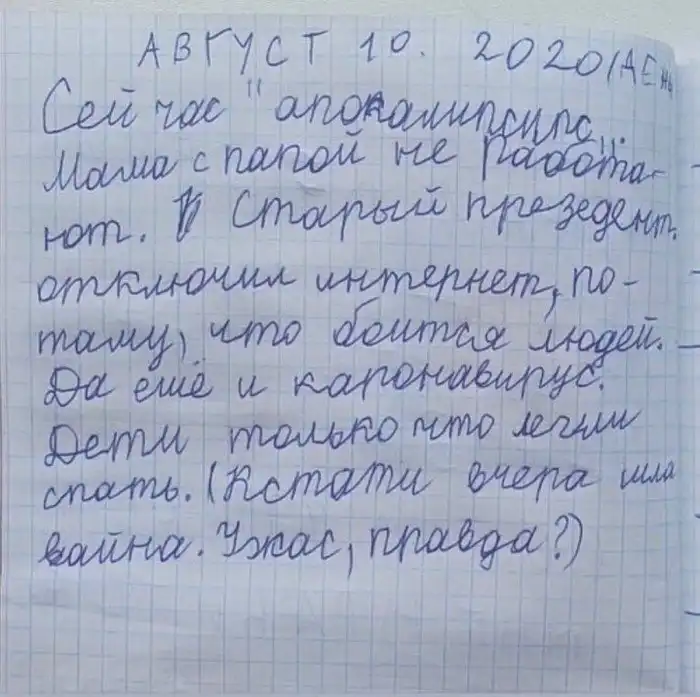 АВГУСТ 10. 2020/ДЕНЬ
Сейчас "апокалипсипс„.
Мама с папой не работа-
ют. В Старый презедент.
отключил интернет, по-
таму, что боится людей.
Да ешё и каронавирус.
Дети только что легли
спать. (Кстати вчера шла
вайна. Ужас, правда?)